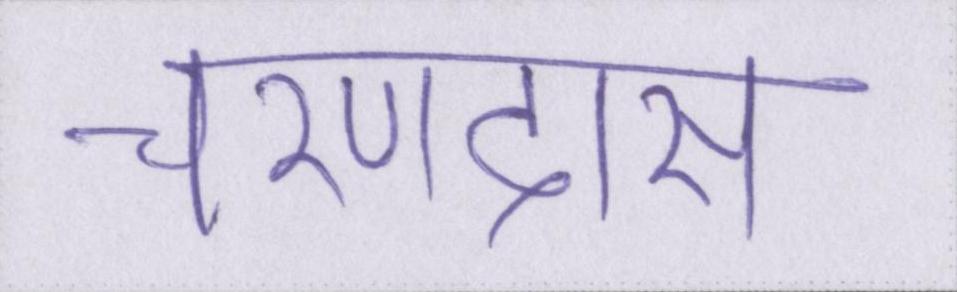 चरणदास